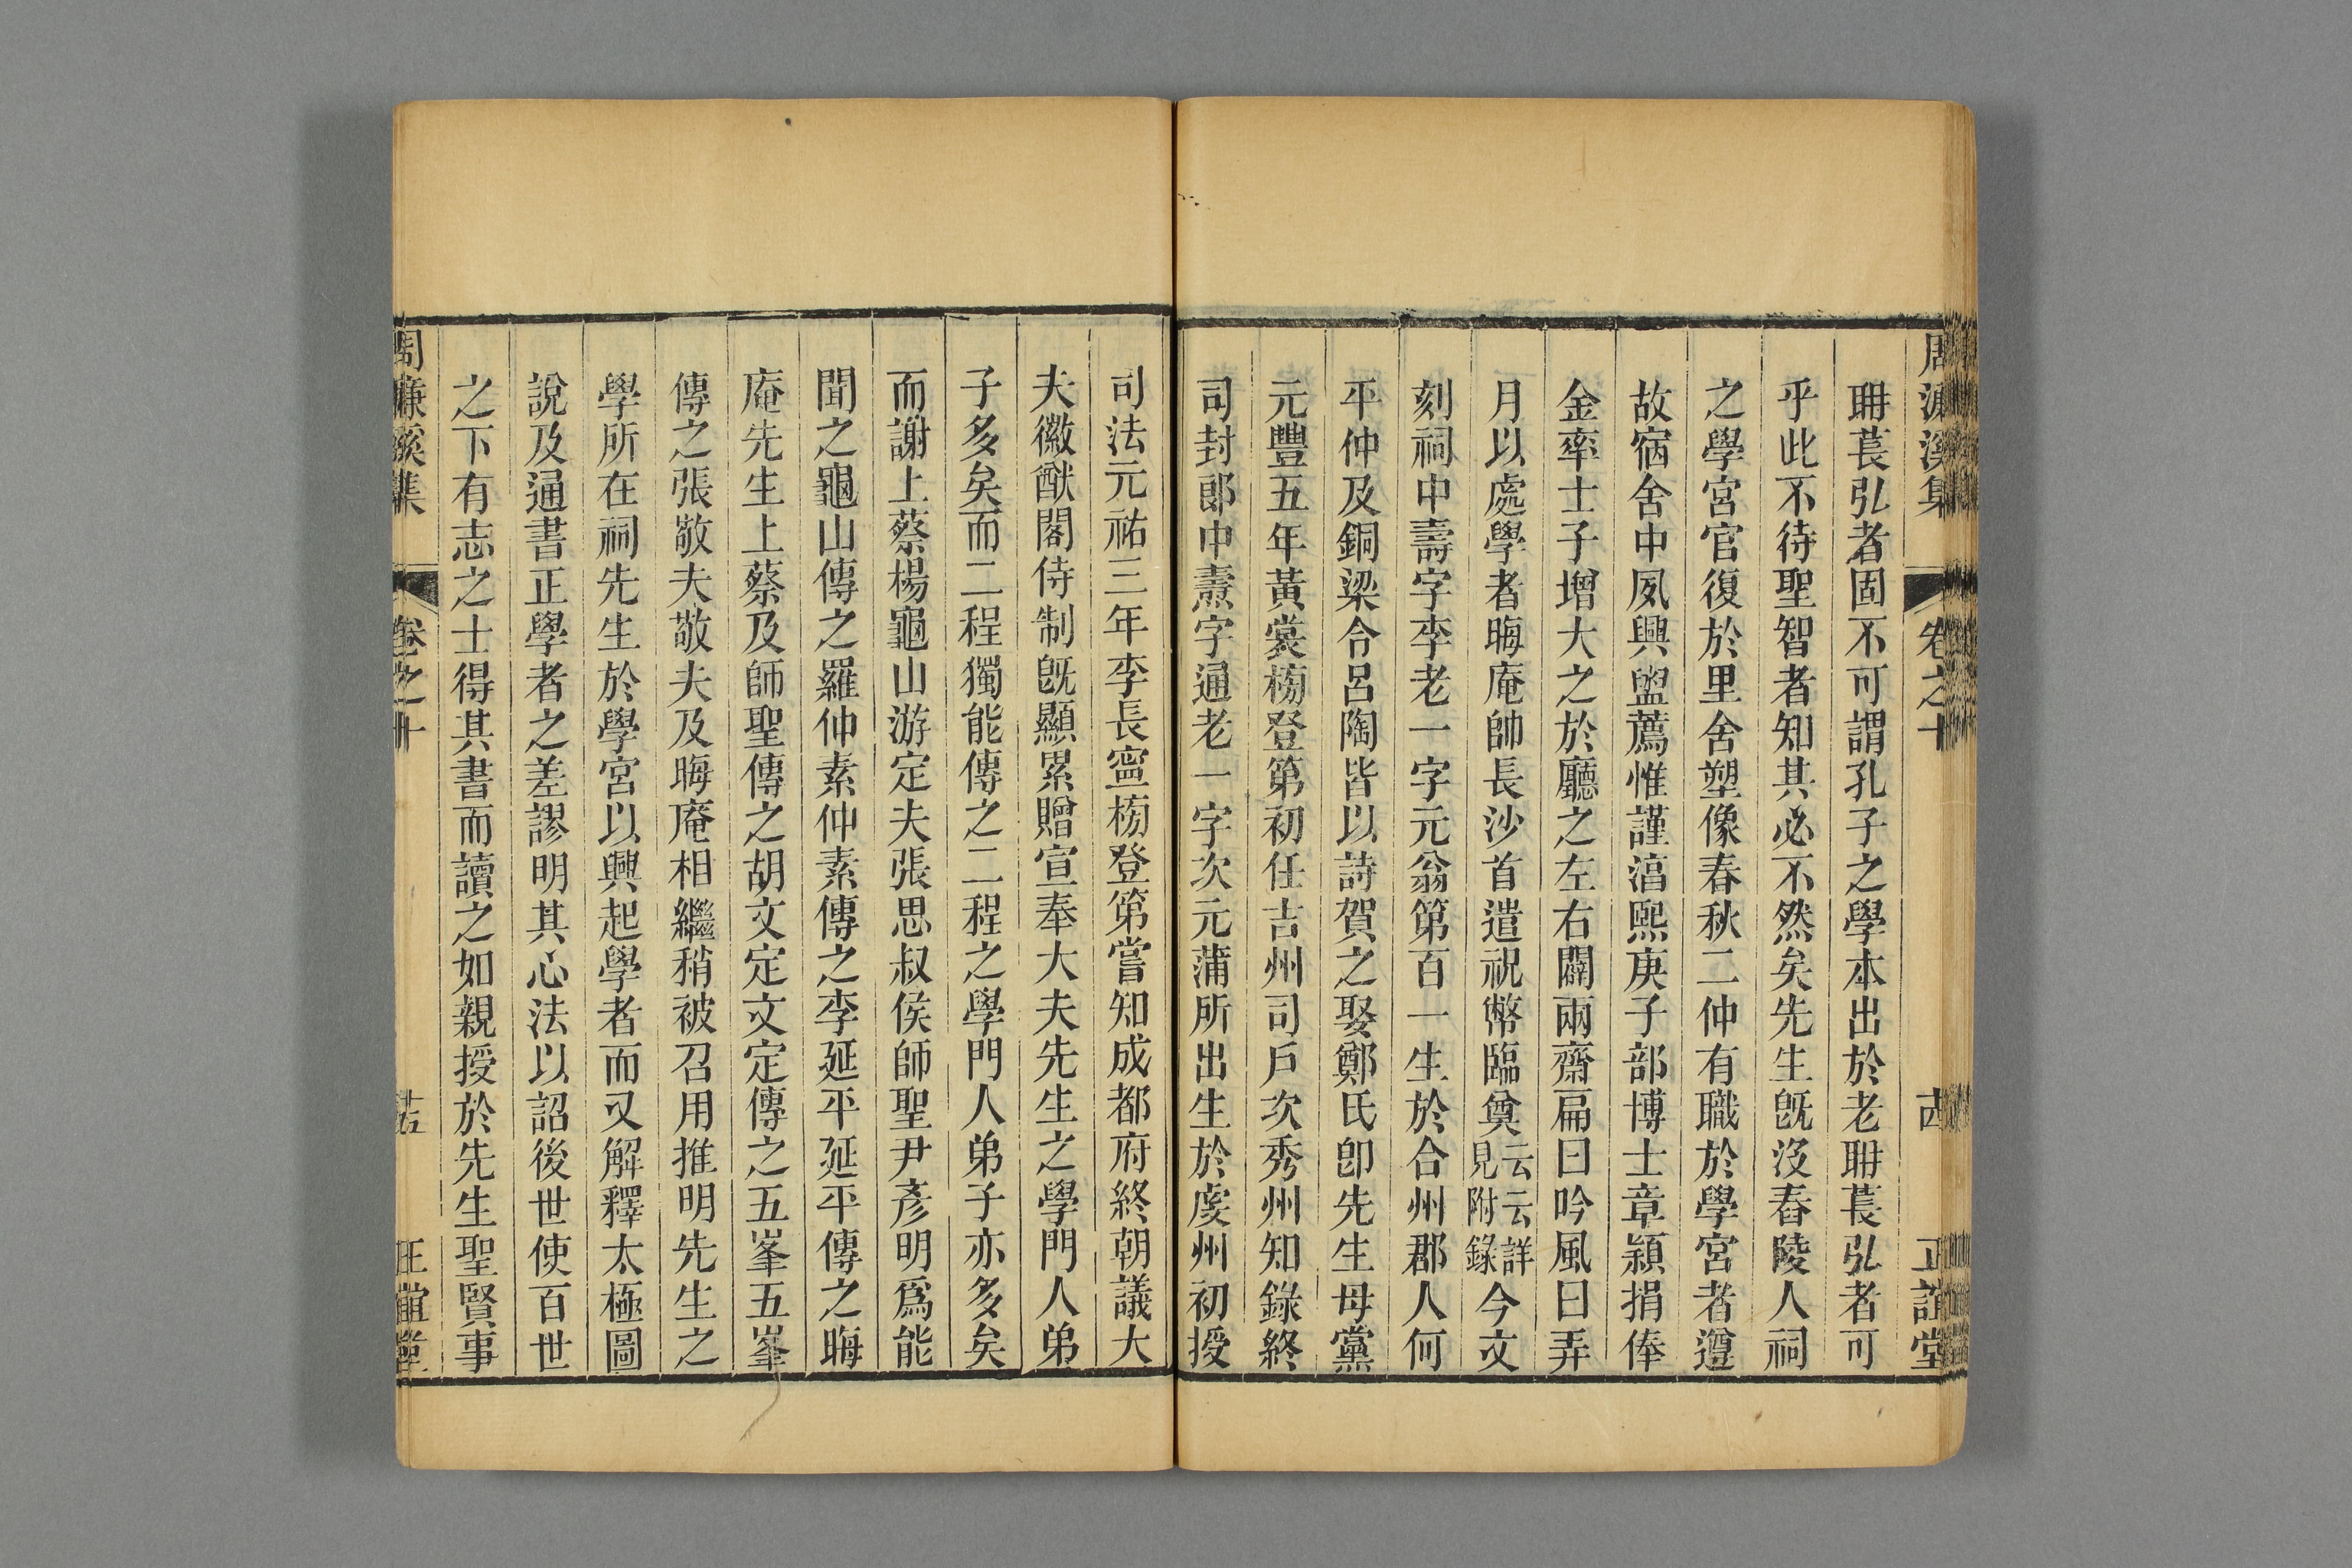 周濂溪集 卷之十 古 正誼堂
聃萇弘者固不可謂孔子之學本出於老聃萇弘者可
乎此不待聖智者知其必不然矣先生旣沒舂陵人祠
之學宮官復於里舍塑像春秋二仲有職於學宮者遵
故宿舍中夙興盥薦惟謹淳熙庚子部博士章潁捐俸
金率士子增大之於廳之左右闢兩齋扁曰吟風曰弄
月以處學者晦庵帥長沙首遣祝幣臨奠云云詳見附錄今文
刻祠中壽字李老一字元翁第百一生於合州郡人何
平仲及銅梁令呂陶皆以詩賀之娶鄭氏卽先生母黨
元豐五年黃裳榜登第初任吉州司戶次秀州知錄終
司封郞中燾字通老一字次元蒲所出生於虔州初授
司法元祐三年李長寧榜登第嘗知成都府終朝議大
夫徽猷閣侍制旣顯累贈宣奉大夫先生之學門人弟
子多矣而二程獨能傳之二程之學門人弟子亦多矣
而謝上蔡楊龜山游定夫張思叔侯師聖尹彥明爲能
聞之龜山傳之羅仲素仲素傳之李延平延平傳之晦
庵先生上蔡及師聖傳之胡文定文定傳之五峯五峯
傳之張敬夫敬夫及晦庵相繼稍被召用推明先生之
學所在祠先生於學宮以興起學者而又解釋太極圖
說及通書正學者之差謬明其心法以詔後世使百世
之下有志之士得其書而讀之如親授於先生聖賢事
周濂溪集 卷之十 正誼堂